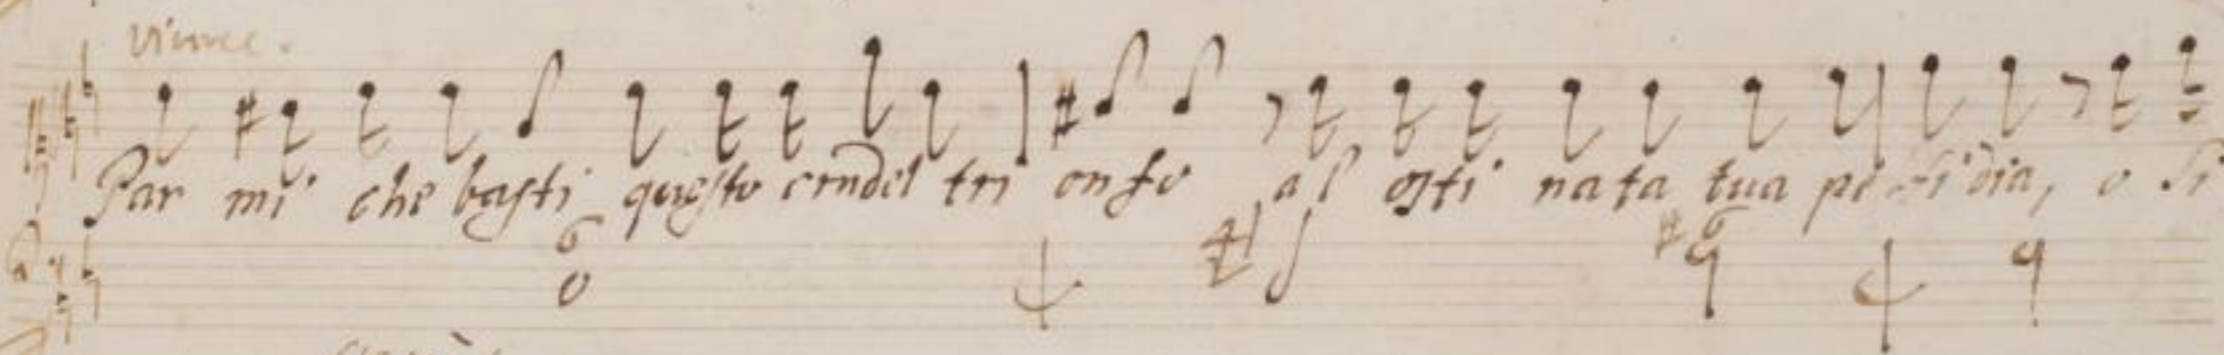 Par mi che basti questo crudel tri onfo al osti nata tua perfidia, o Si
6
6